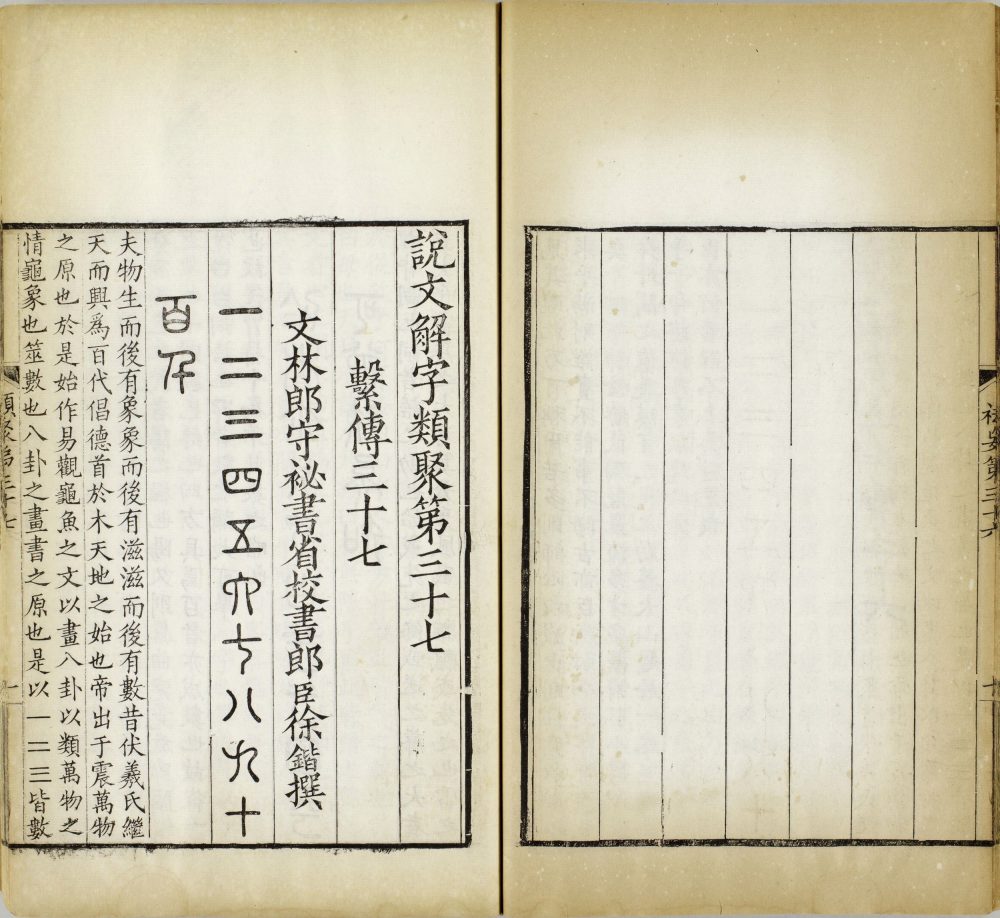 祛妄第三十六
十
說文解字類聚第三十七
繫傳三十七
文林郎守祕書省校書郎臣徐鍇撰
一二三四五六七八九十
百千
夫物生而後有象象而後有滋滋而後有數昔伏羲氏繼
天而興爲百代倡德首於木天地之始也帝出于震萬物
之原也於是始作易觀龜魚之文以畫八卦以類萬物之
情龜象也筮數也八卦之畫書之原也是以一二三皆數
類聚第三十七
一